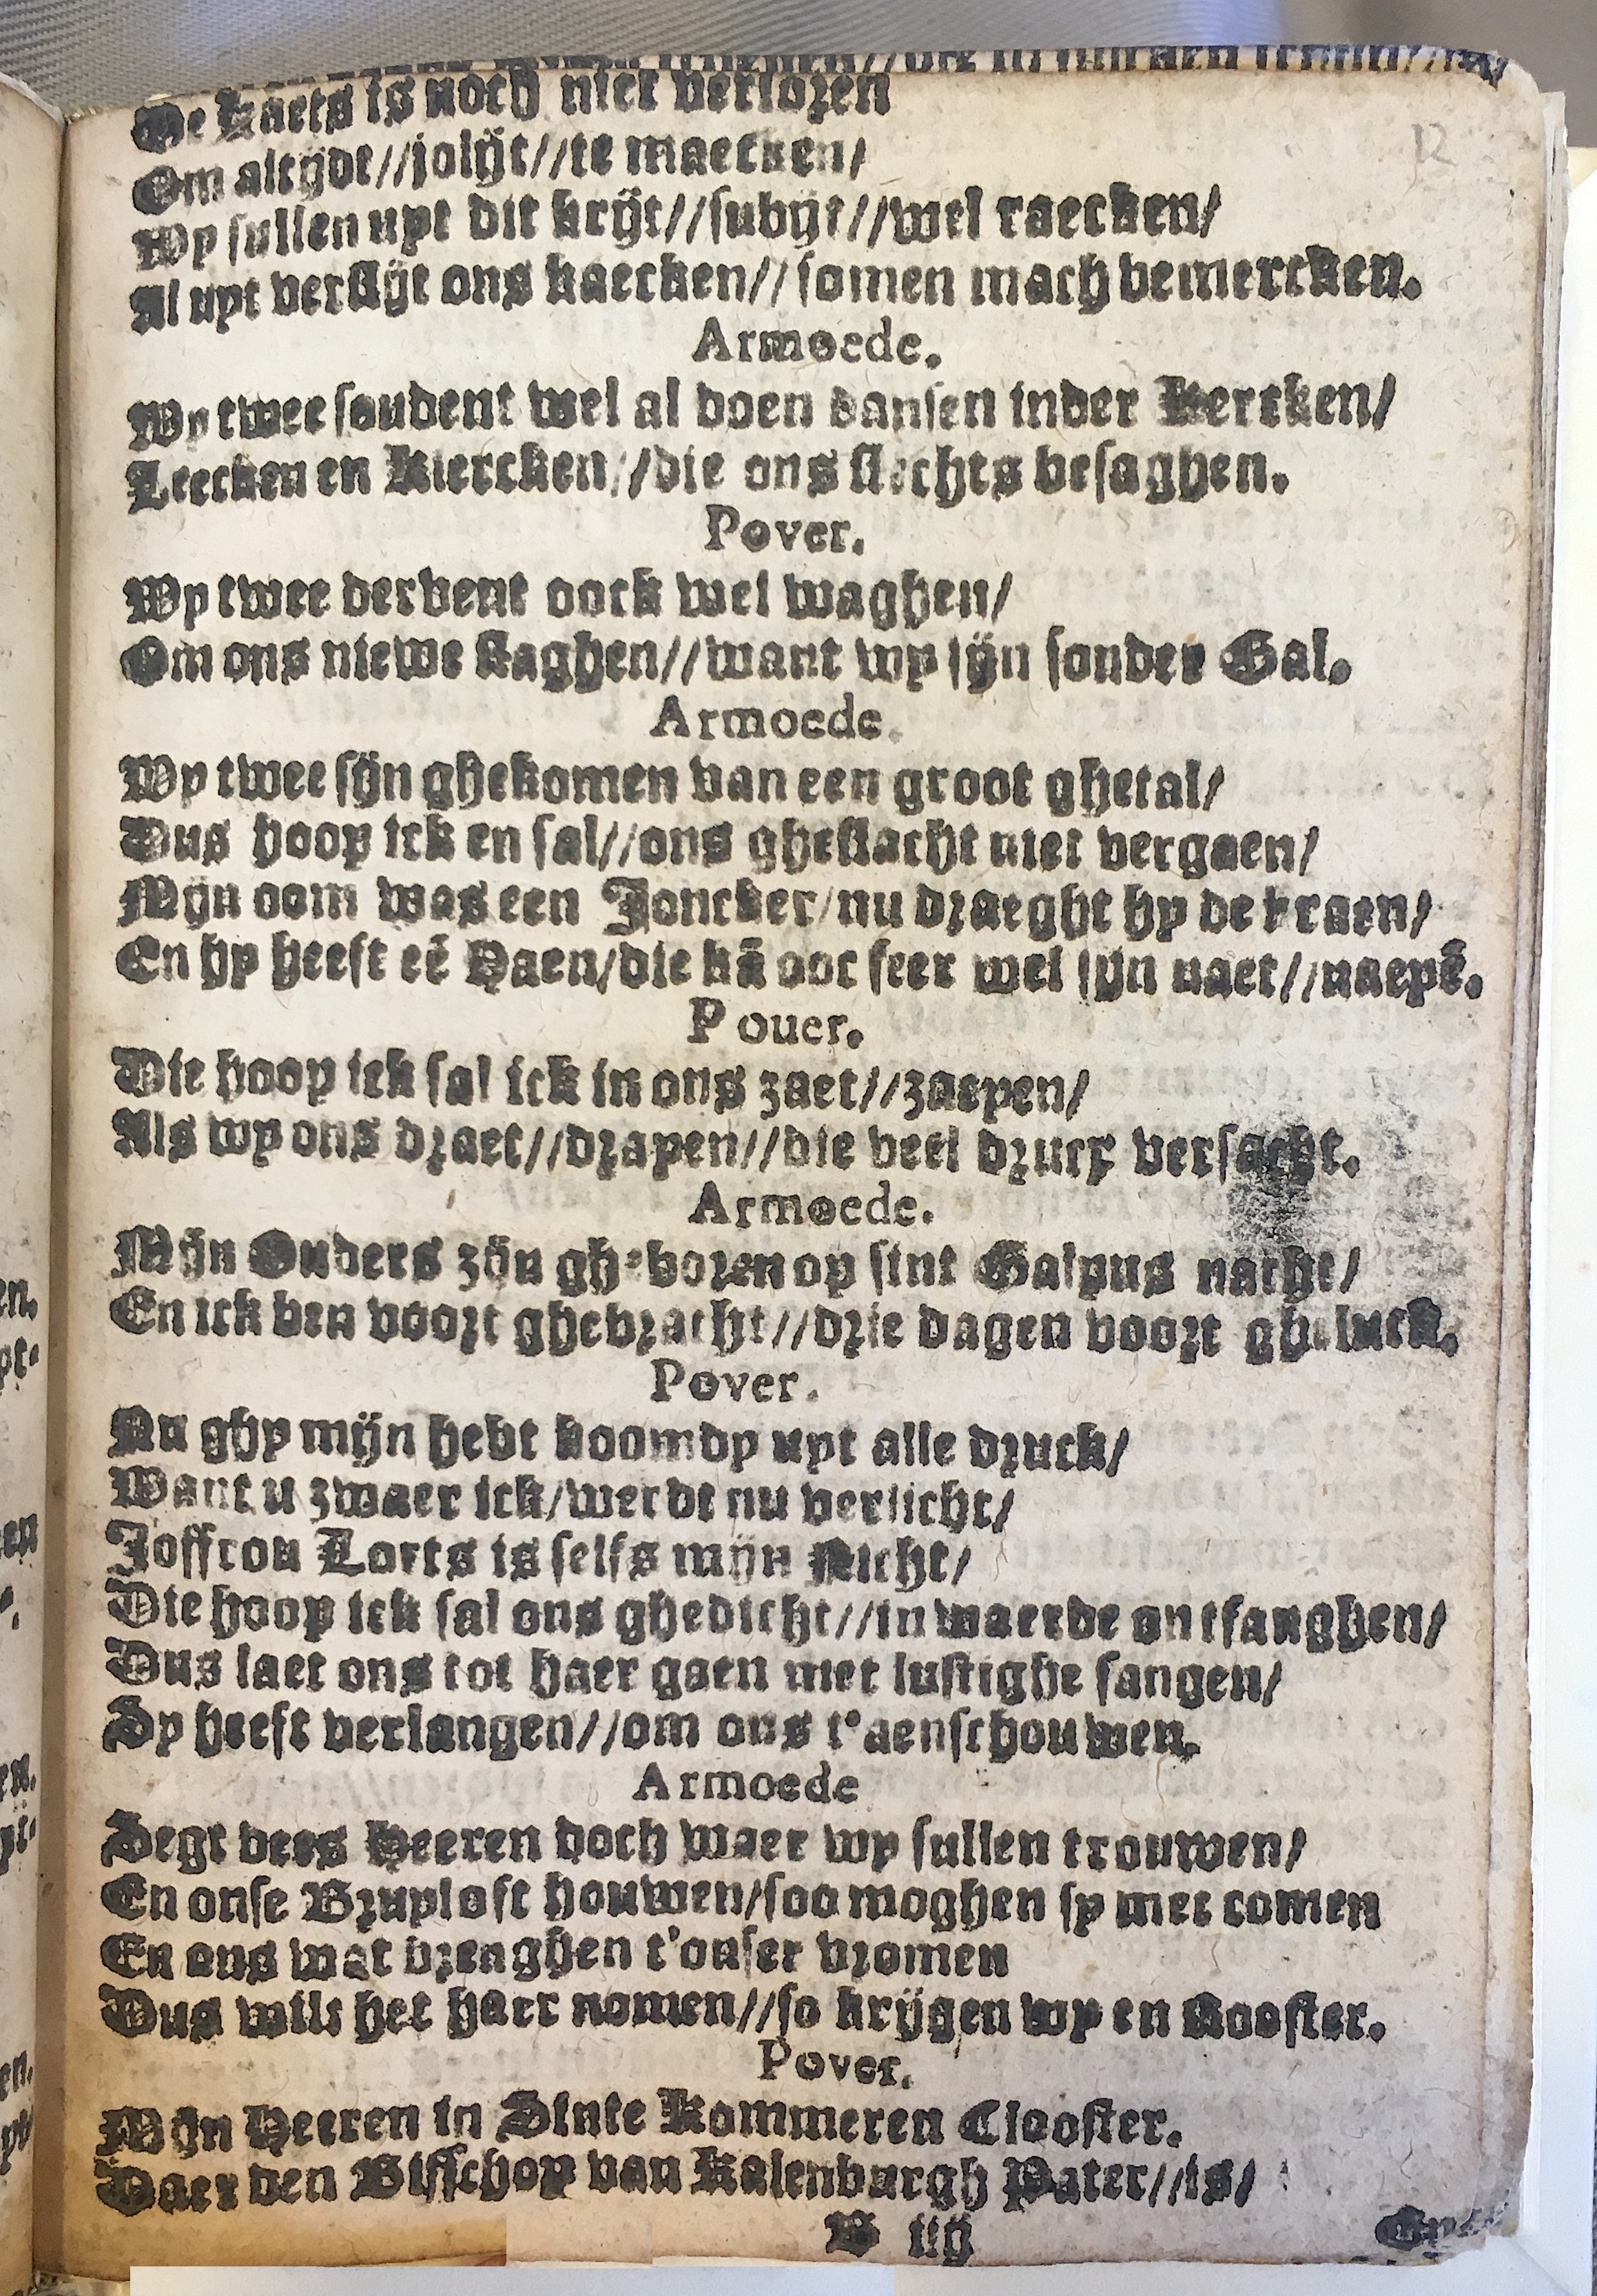 De Kaets is noch niet verlozen
Om altijdt//jolijt//te maecken/
Wy sullen uyt dit krijt//subijt//wel raecken/
Al uyt verslijt ons kaecken//somen mach bemercken.
Armoede.
Wy twee soudent wel al doen dansen inder Kercken/
Leecken en Klercken//die ons slechts besaghen.
Pover.
Wy twee dervent oock wel waghen/
Om ons niewe slaghen//want wy sijn sonder Gal.
Armoede.
Wy twee sijn ghekomen van een groot ghetal/
Dus hoop ick en sal//ons gheslacht niet vergaen/
Mijn oom was een Joncker/nu draeght hy de kraen/
En hy heeft eē Haen/die kā ooc seer wel sijn naet//naeyē.
Pouer.
Die hoop ick sal ick in ons zaet//zaeyen/
Als wy ons draet//drayen//die veel druck versacht.
Armoede.
Mijn Ouders zijn gheboren op sint Galpus nacht/
En ick ben voort ghebracht//drie dagen voort gheluck.
Pover.
Nu ghy mijn hebt koomdy uyt alle druck/
Want u zwaer ick/werdt nu verlicht/
Joffrou Lorts is selfs mijn Nicht/
Die hoop ick sal ons ghedicht//in waerde ontfanghen/
Dus laet ons tot haer gaen met lustighe sangen/
Sy heeft verlangen//om ons t'aenschouwen.
Armoede
Segt dees Heeren doch waer wy sullen trouwen/
En onse Bruyloft houwen/soo moghen sy met comen
En ons wat brenghen t'onser vromen
Dus wilt het haer nomen//so krijgen wy en Rooster.
Pover.
Mijn Heeren in Sinte Kommeren Clooster.
Daer den Bisschop van Kalenburgh Pater//is/
B iij